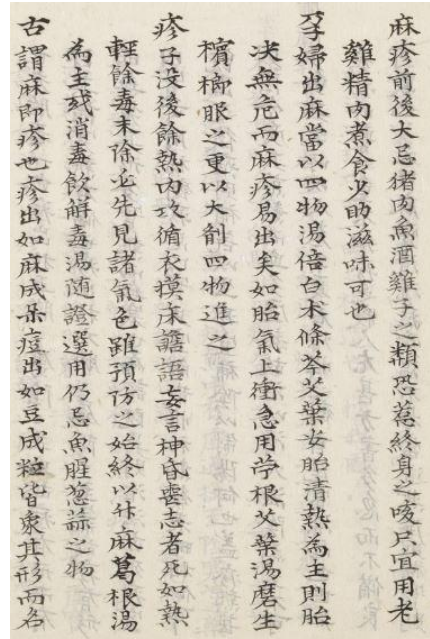 麻疹前後大忌猪肉魚酒雞子之類恐惹終身之咳只宜用老
雞精肉煮食少助滋味可也
孕婦出麻當以四物湯倍白术條芩艾葉安胎清熱為主則胎
决無危而麻疹易出矣如胎氣上衝急用苧根艾葉湯磨生
檳榔服之更以大劑四物進之
疹子没後餘熱内攻循衣摸床譫語妄言神昏喪志者死如熱
輕餘毒未除必先見諸氣色雖預防之始終以升麻葛根湯
為主或消毒飲解毒湯随證選用仍忌魚腥葱蒜之物
古謂麻即疹也疹出如麻成朶痘出如豆成粒皆象其形而名